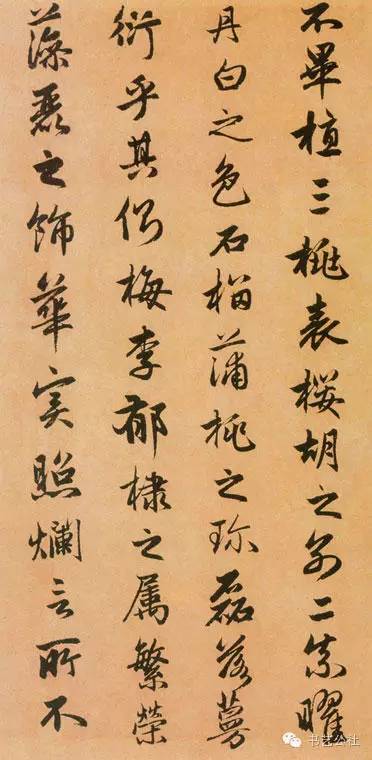 不畢植三桃表櫻胡之别二柰曜
丹白之色石榴蒲桃之珍磊落蔓
衍乎其側梅李郁棣之属繁榮
藻麗之飾華实照爛言所不
书艺公社